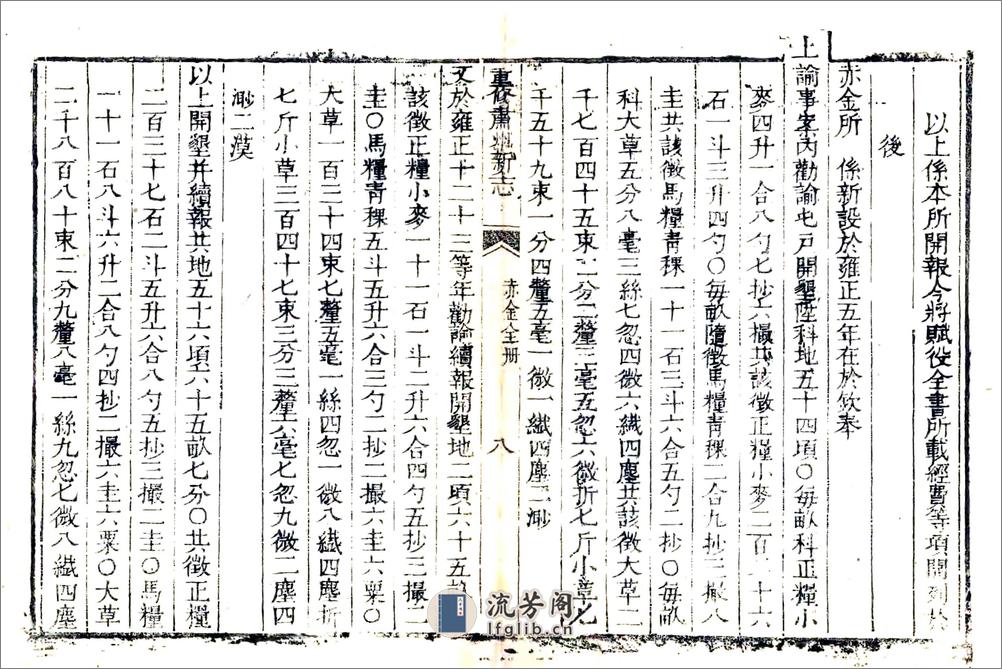 以上係本所開報今將賦役全書所載經費等項開列於
後
赤金所 係新設於雍正五年在於欽奉
上諭事案內勸諭屯戶開墾陞科地五十四頃〇每畝科正糧小
麥四升一合八勺七抄六撮共該徵正糧小麥二百二十六
石一斗三升四勺〇每畝隨徵馬糧青稞二合九抄三撮八
圭共該徵馬糧青稞一十一石三斗六合五勺二抄〇每畝
科大草五分八毫三絲七忽四微六纖四塵共該徵大草二
千七百四十五束二分二釐三毫五忽六微折七斤小草七
千五十九束一分四釐五毫一微一纖四塵二渺
重修肅州新志 赤金全册 八
又於雍正十二十三等年勸諭續報開墾地二頃六十五畝
該徵正糧小麥一十一石一斗二升六合四勺五抄三撮二
圭〇馬糧青稞五斗五升六合三勺二抄二撮六圭六粟〇
大草一百三十四束七釐五毫一絲四忽一微八纖四塵折
七斤小草三百四十七束三分三釐六毫七忽九微二塵四
渺二漠
以上開墾并續報共地五十六頃六十五畝七分〇共徵正糧
二百三十七石二斗五升六合八勺五抄三撮二圭〇馬糧
一十一石八斗六升二合八勺四抄二撮六圭六粟〇大草
二千八百八十束二分九釐八毫一絲九忽七微八纖四塵
流芳阁
lfglib.cn